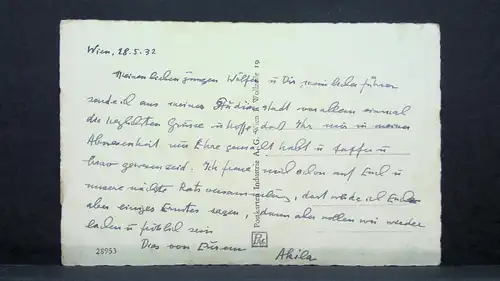 Wien, 28.5.32
Meinen lieben jungen Wölfen u Dir mein lieber Führer
sende ich aus meiner Studienstadt vor allem einmal
die herzlichsten Grüsse u hoffe daß Ihr mir in meiner
Abwesenheit nur Ehre gemacht habt u tapfer u
brav gewesen seid. Ich freue mich schon auf Euch u
unsere nächste Ratsversammlung, dort werde ich Euch
aber einiges Ernstes sagen, dann aber wollen wir wieder
lachen u fröhlich sein
Dies von Eurem
Akila
Postkarten-Industrie A.-G. Wien I Wollzeile 19
PAG
28953